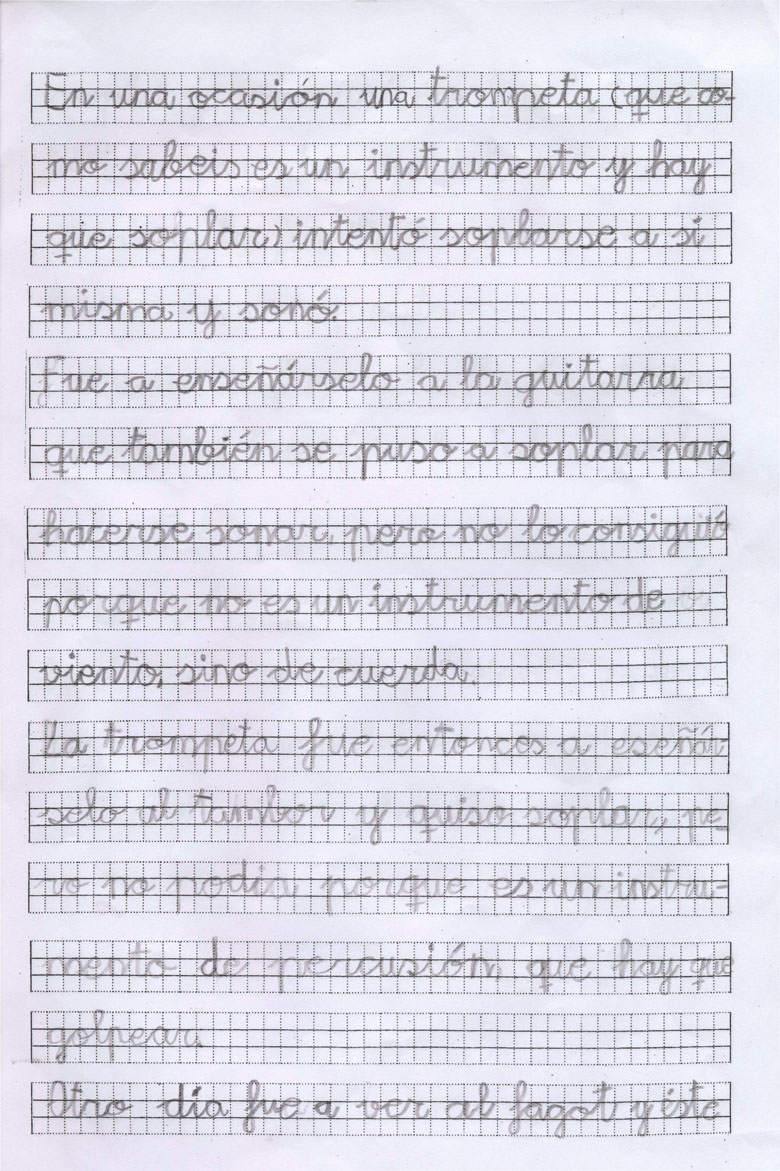 En una ocasión una trompeta (que co-
mo sabeis es un instrumento y hay
que soplar) intentó soplarse a si
misma y sonó.
Fue a enseñárselo a la guitarra
que también se puso a soplar para
hacerse sonar, pero no lo consiguió
porque no es un instrumento de
viento, sino de cuerda.
La trompeta fue entonces a eseñár-
selo al tambor y quiso soplar, pe-
ro no podia porque es un instru-
mento de percusión, que hay que
golpear.
Otro día fue a ver al fagot y éste